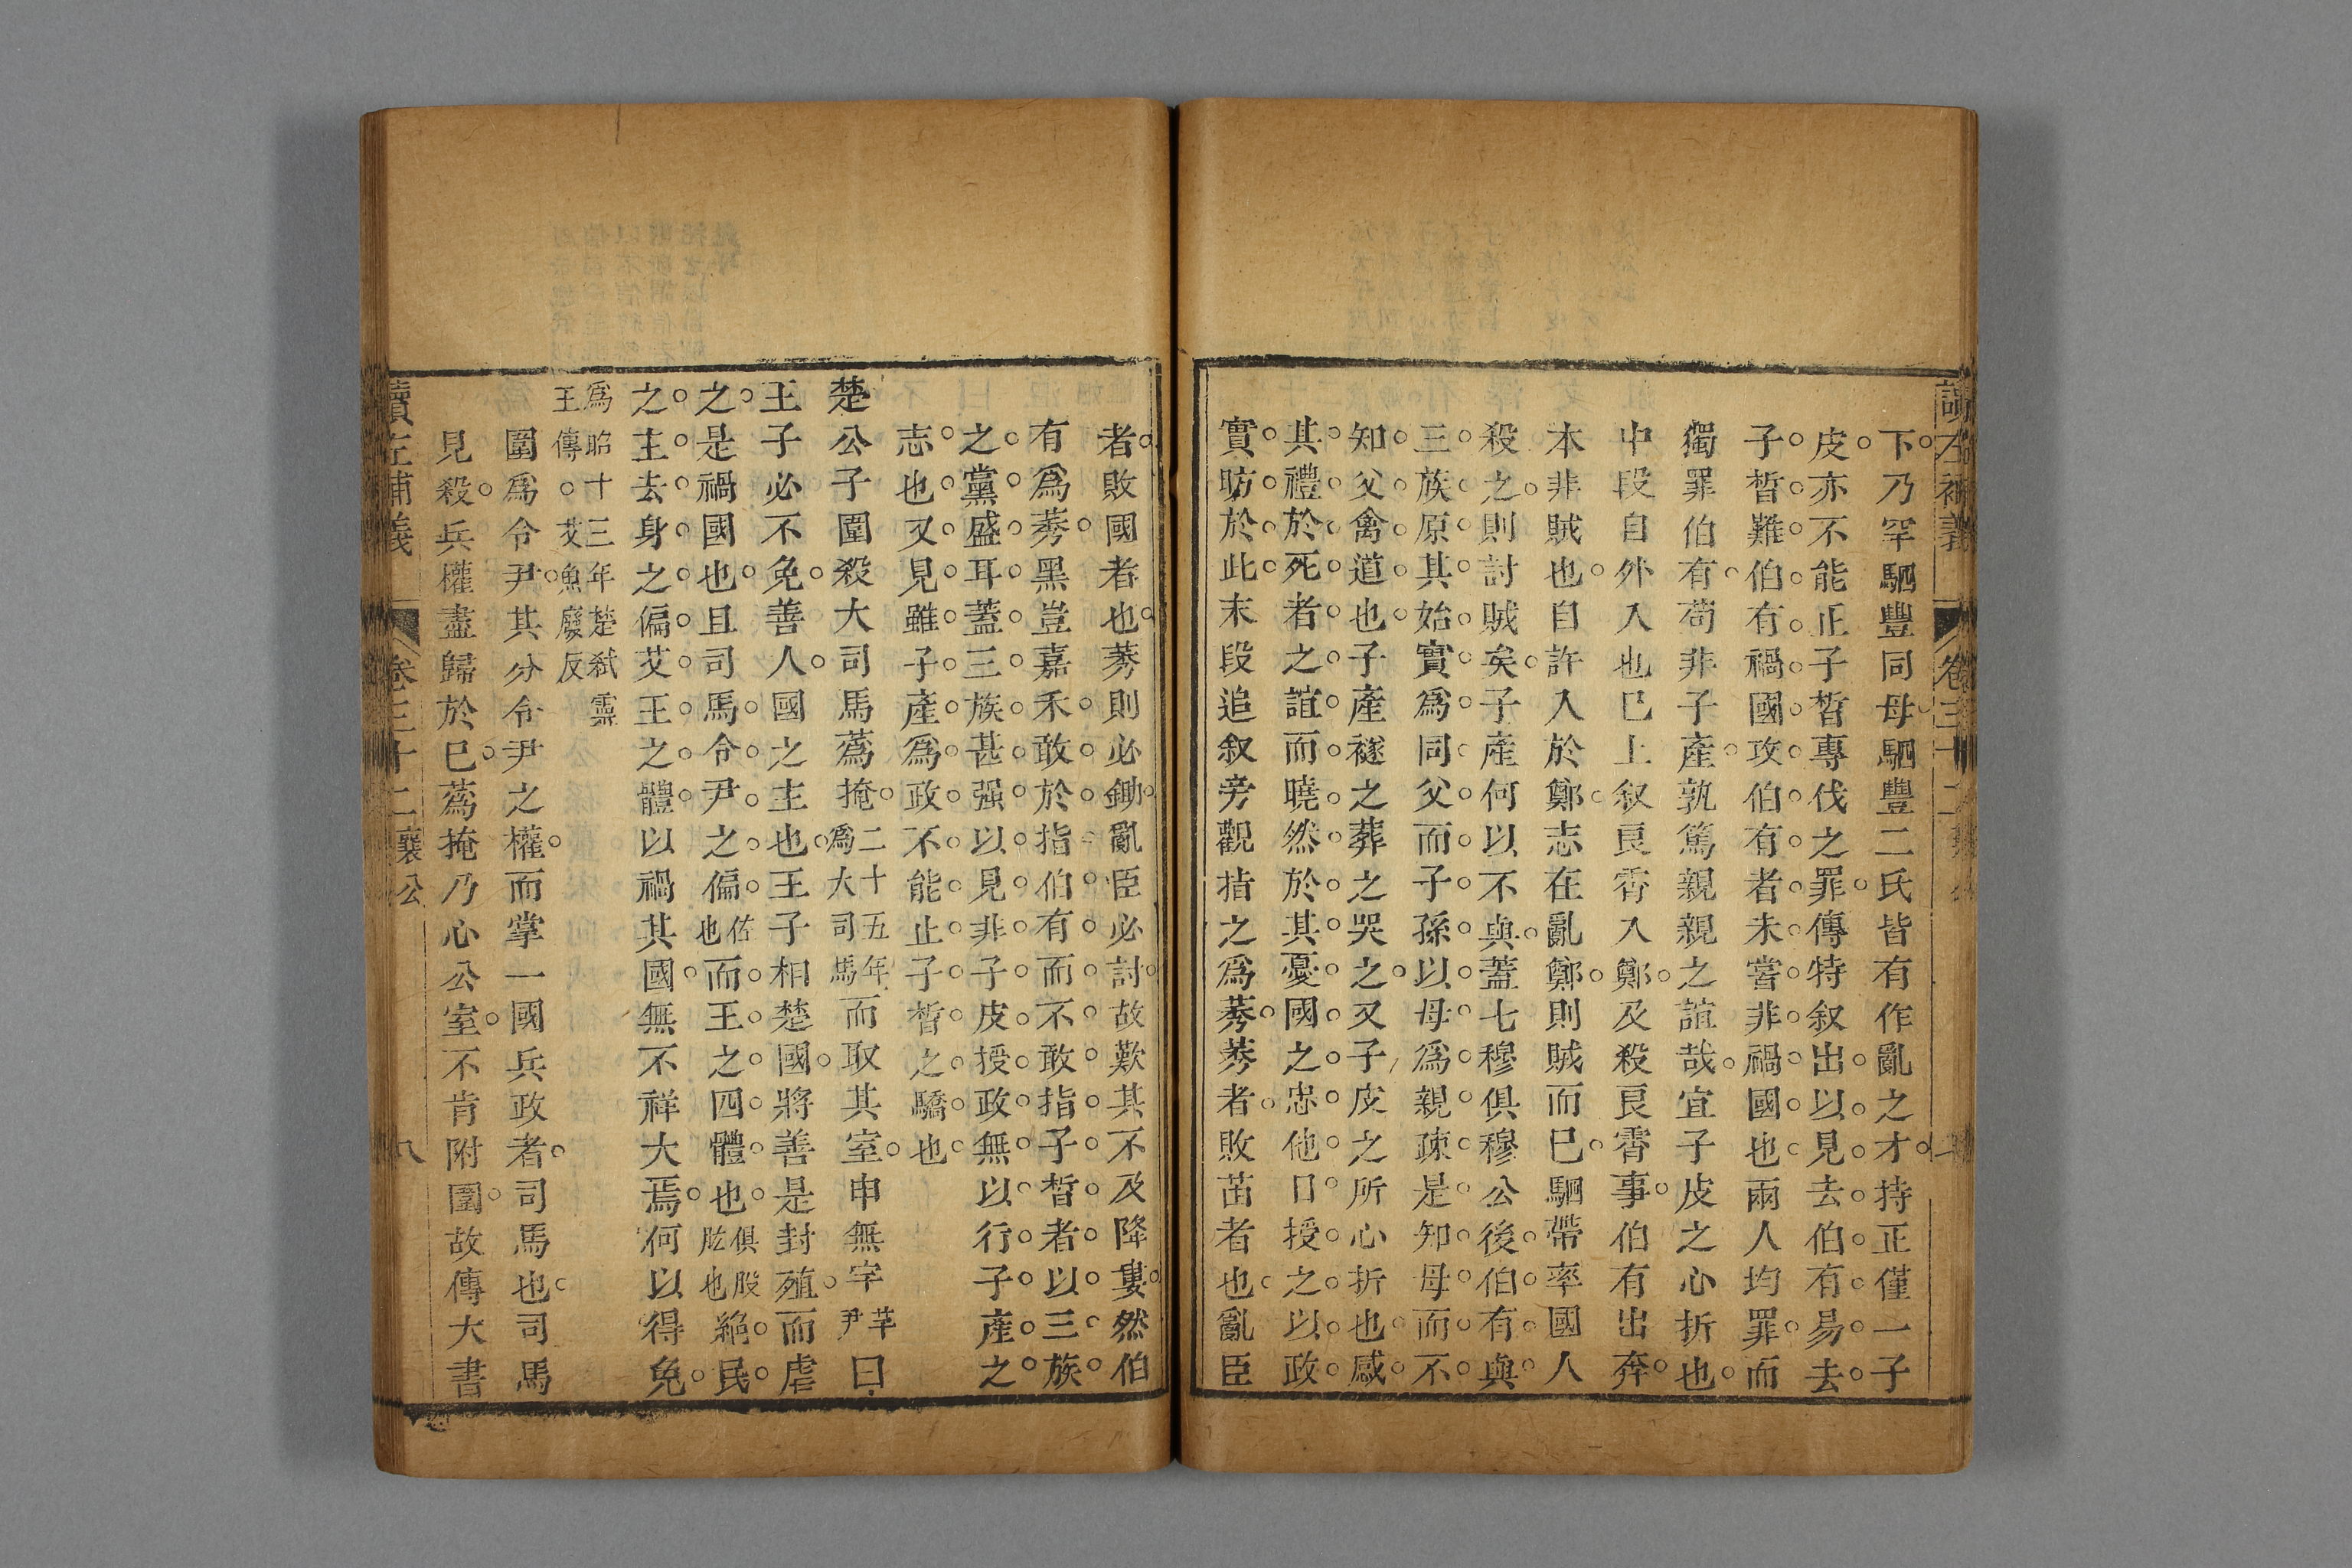 讀左補義 卷三十二 襄公
下乃罕駟豐同母駟豐二氏皆有作亂之才持正僅一子
皮亦不能正子晳專伐之罪傳特叙出以見去伯有易去
子晳難伯有禍國攻伯有者未嘗非禍國也兩人均罪而
獨罪伯有苟非子產孰篤親親之誼哉宜子皮之心折也
中段自外入也已上叙良霄入鄭及殺良霄事伯有出奔
本非賊也自許入於鄭志在亂鄭則賊而已駟帶率國人
殺之則討賊矣子產何以不與蓋七穆俱穆公後伯有與
三族原其始實爲同父而子孫以母爲親疎是知母而不
知父禽道也子產襚之葬之哭之又子皮之所心折也感
其禮於死者之誼而曉然於其憂國之忠他日授之以政
實昉於此末段追叙旁觀指之爲莠莠者敗苗者也亂臣
者敗國者也莠則必鋤亂臣必討故歎其不及降婁然伯
有爲莠黑豈嘉禾敢於指伯有而不敢指子晳者以三族
之黨盛耳蓋三族甚强以見非子皮授政無以行子產之
志也又見雖子產爲政不能止子晳之驕也
楚公子圍殺大司馬蒍掩二十五年爲大司馬而取其室申無宇芊尹曰
王子必不免善人國之主也王子相楚國將善是封殖而虐
之是禍國也且司馬令尹之偏佐也而王之四體也俱股肱也絕民
之主去身之偏艾王之體以禍其國無不祥大焉何以得免
爲昭十三年楚弒靈王傳○艾魚廢反
圍爲令尹其分令尹之權而掌一國兵政者司馬也司馬
見殺兵權盡歸於已蒍掩乃心公室不肯附圍故傳大書
讀左補義 卷三十二 襄公 八